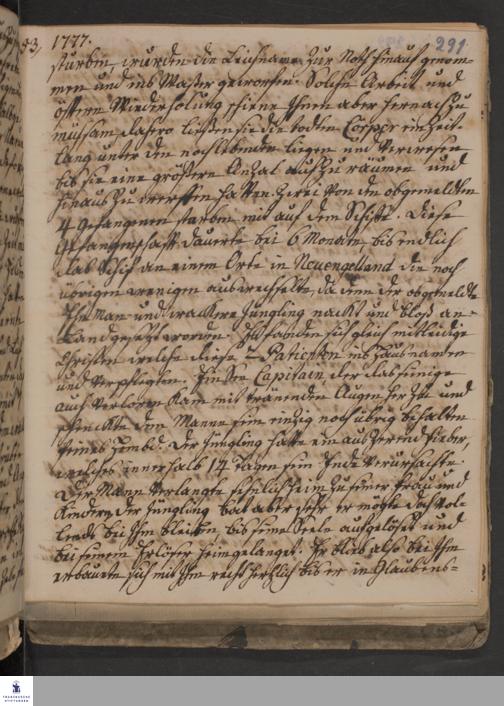 53, 1777. 291
sturben, wurden die Leichname zur Noth hinauf genom-
men und ins Waßer geworfen. Solche Arbeit und
öftere Wiederholung schiene ihnen aber hernach zu
mühsam, dahero ließen sie die todten Cörper ein Zeit-
lang unter den noch lebenden liegen und verwesen
bis sie eine größere Anzal aufzuräumen und
hinaus zu werffen hatten. Zwei von den obgemeldten
4 gefangenen starben mit auf dem Schiffe. Diese
Gefangenschafft dauerte bei 6 Monate, bis endlich
das Schif an einem Orte in Neuengelland die noch
übrigen wenigen auswechselte, da denn der obgemeldte
Ehe Man und wackere Jüngling nackt und bloß an
Land gesetzt worden. Es fanden sich gleich mitleidige
Christen welche diese 2 Patienten ins Haus namen
und verpflegten. Ihr See Capitain, der das seinige
auch verloren kam mit tränenden Augen her zu und
schenckte dem Manne sein einzig noch übrig behalten
feines Hembd. Der Jüngling hatte ein auszerend Fieber,
welches innerhalb 14 Tagen sein Ende verursachte.
Der Mann verlangte sehnlich heim zu seiner Frau und
Kindern, der Jüngling bat aber sehr er mögte doch vol-
lends bei ihm bleiben bis seine Seele aufgelößet und
bei seinem Erlöser heimgelanget. Er blieb also bei ihm
erbauete sich mit ihm recht hertzlich bis er in Glaubens-
FRANCKESCHE
STIFTUNGEN